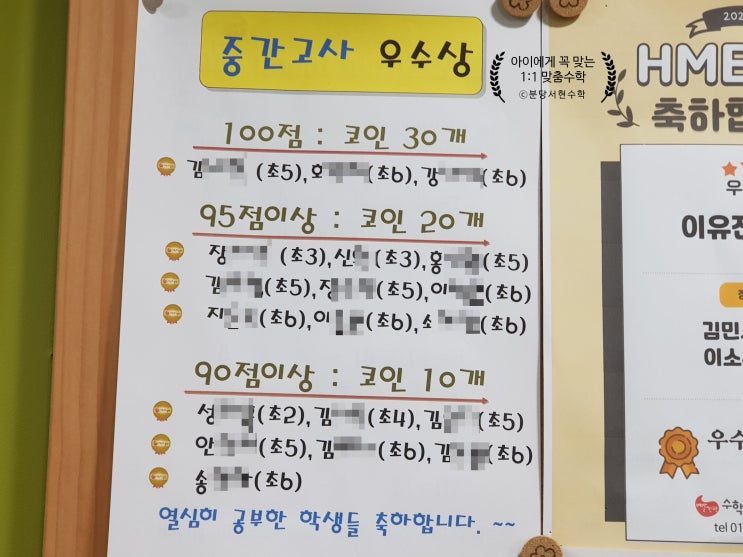 중간고사 우수상
아이에게 꼭 맞는
1:1 맞춤수학
ⓒ분당서현수학
100점 : 코인 30개
김 (초5), 호 (초6), 강 (초6)
95점이상 : 코인 20개
장 (초3), 신 (초3), 홍 (초5)
김 (초5), 장 (초5), 이 (초6)
지 (초6), 이 (초6), 소 (초6)
90점이상 : 코인 10개
성 (초2), 김 (초4), 김 (초5)
안 (초5), 김 (초6), 김 (초6)
송 (초6)
열심히 공부한 학생들 축하합니다. ~~
202
HME
축하합
우
이유진
김민
이소
우수
수학
tel 01